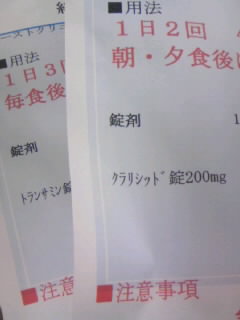 ■用法
1日3回
毎食後
錠剤
トランサミン錠
■注意
■用法
1日2回
朝・夕食後
錠剤
クラリシッド錠200mg
■注意事項